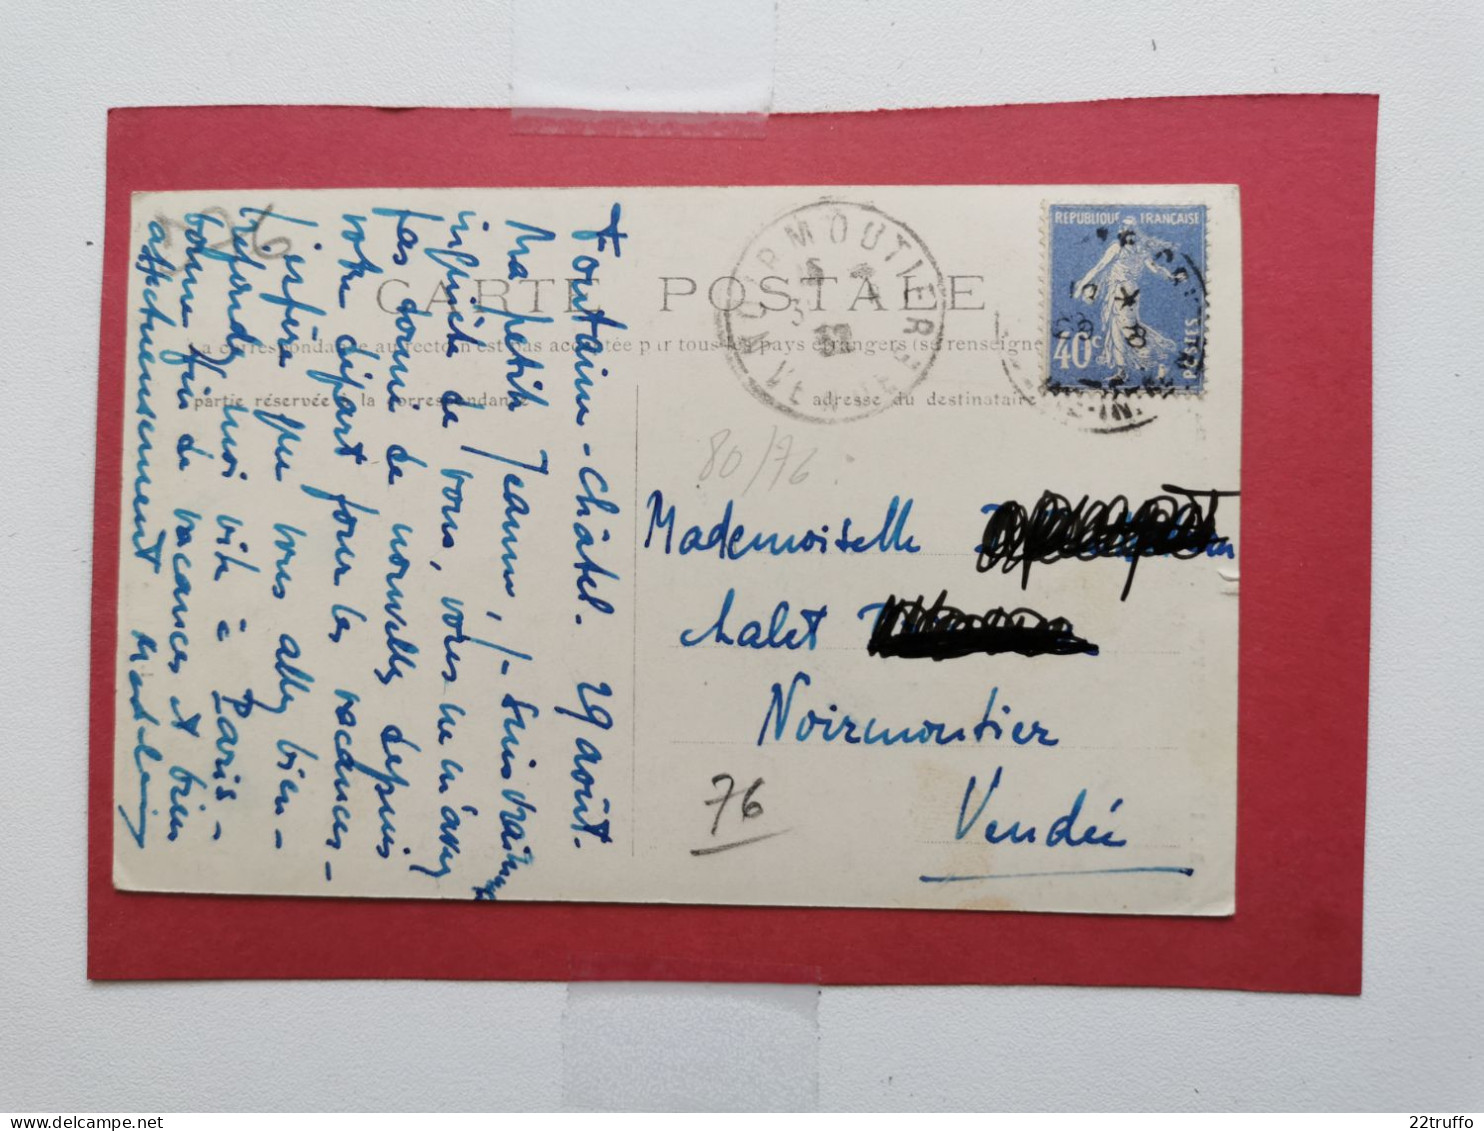 CARTE POSTALE
La correspondance au recto n'est pas acceptée par tous les pays étrangers (se renseigne
partie réservée à la correspondance
adresse du destinataire
Fontaine-Châtel. 29 août.
Ma petite Jeanne, je suis
inquiète de vous, vous ne m'avez
pas donné de nouvelles depuis
votre départ pour les vacances.
J'espère que vous allez bien.
Répondez moi vite à Paris.
bonne fin de vacances et bien
affectueusement Madeleine
REPUBLIQUE FRANÇAISE
40c
POSTES
NOIRMOUTIER
VENDEE
80/76
Mademoiselle
chalet
Noirmoutier
Vendée
76
22truffo
delcampe.net